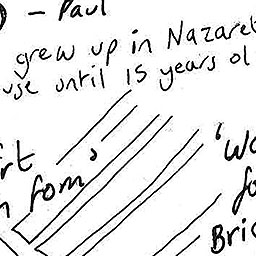 – Paul
grew up in Nazaret
use until 15 years ol
'Wo
fo
Bric